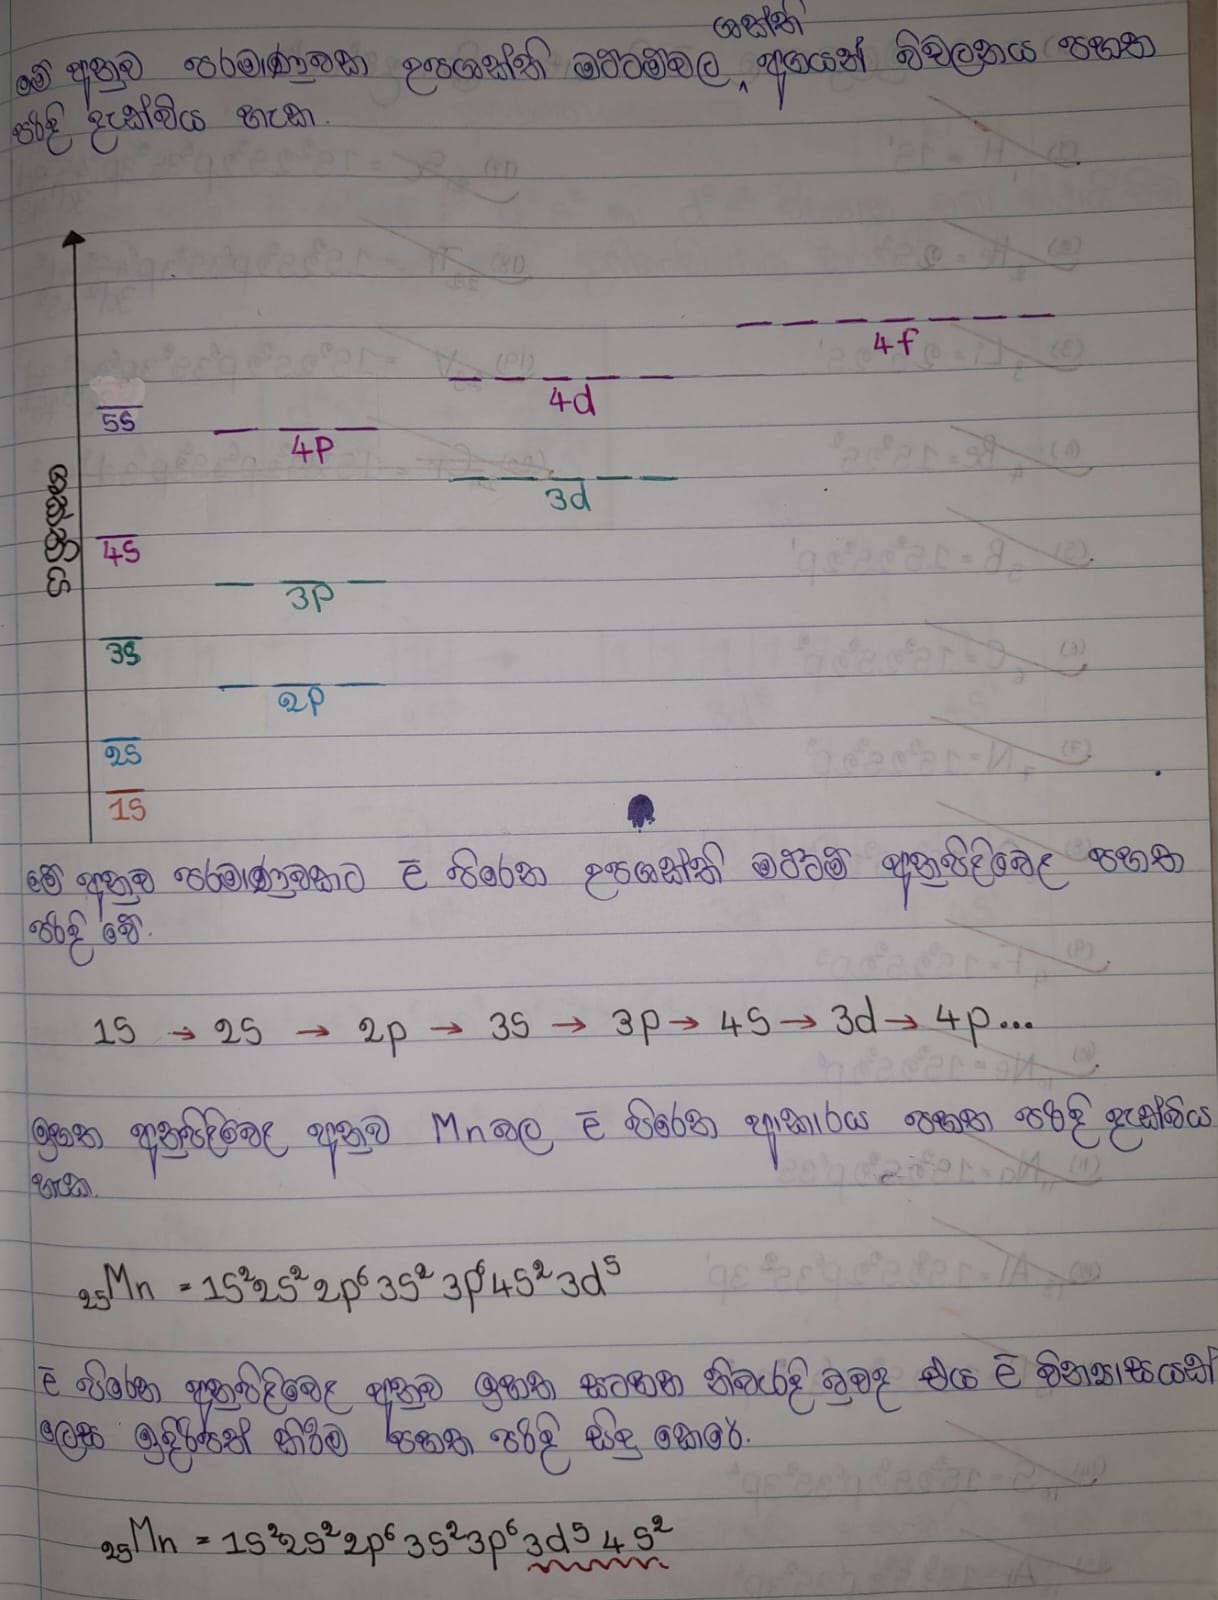 ශක්ති
මේ අනුව පරමාණුවක උපශක්ති මට්ටම්වල අගයන් විචලනය පහත
පරිදි දැක්විය හැක.
4f
4d
5s
4p
3d
4s
3p
3s
2p
2s
1s
ශක්තිය
මේ අනුව පරමාණුවකට ē පිරෙන උපශක්ති මට්ටම් අනුපිළිවෙල පහත
පරිදි වේ.
1s → 2s → 2p → 3s → 3p → 4s → 3d → 4p...
ඉහත අනුපිළිවෙල අනුව Mn වල ē පිරෙන ආකාරය පහත පරිදි දැක්විය
හැක.
₂₅Mn = 1s²2s²2p⁶3s²3p⁶4s²3d⁵
ē පිරෙන අනුපිළිවෙල අනුව ඉහත සටහන නිවැරදි වුවද එය ē වින්‍යාසයක්
ලෙස ඉදිරිපත් කිරීම පහත පරිදි සිදු කෙරේ.
₂₅Mn = 1s²2s²2p⁶3s²3p⁶3d⁵4s²